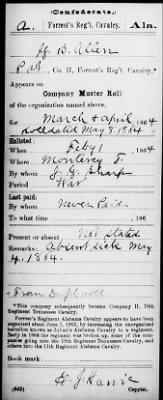 (Confederate.)
A. Forrest's Reg't, Cavalry. Ala.
B. Allen
Pvt, Co. H, Forrest's Reg't, Cavalry.*
Appears on
Company Muster Roll
of the organization named above,
for March & April, 1864
Roll dated May 8, 1864.
Enlisted:
When Feby 1, 1864
Where Monterey T.
By whom J. G. Sharp
Period War
Last paid:
By whom Never Paid
To what time , 186
Present or absent Not Stated
Remarks: Absent Sick May
4, 1864.
From Duplicate
*This company subsequently became Company H, 18th
Regiment Tennessee Cavalry.
Forrest's Regiment Alabama Cavalry appears to have been
organized about June 1, 1863, by increasing the
battalion known as Julian's Alabama Cavalry to a regiment.
Early in 1864 the regiment was broken up, some of the com-
panies going into the 18th Regiment Tennessee Cavalry, and
others into the 11th Regiment Alabama Cavalry.
Book mark:
(642)
Copyist.